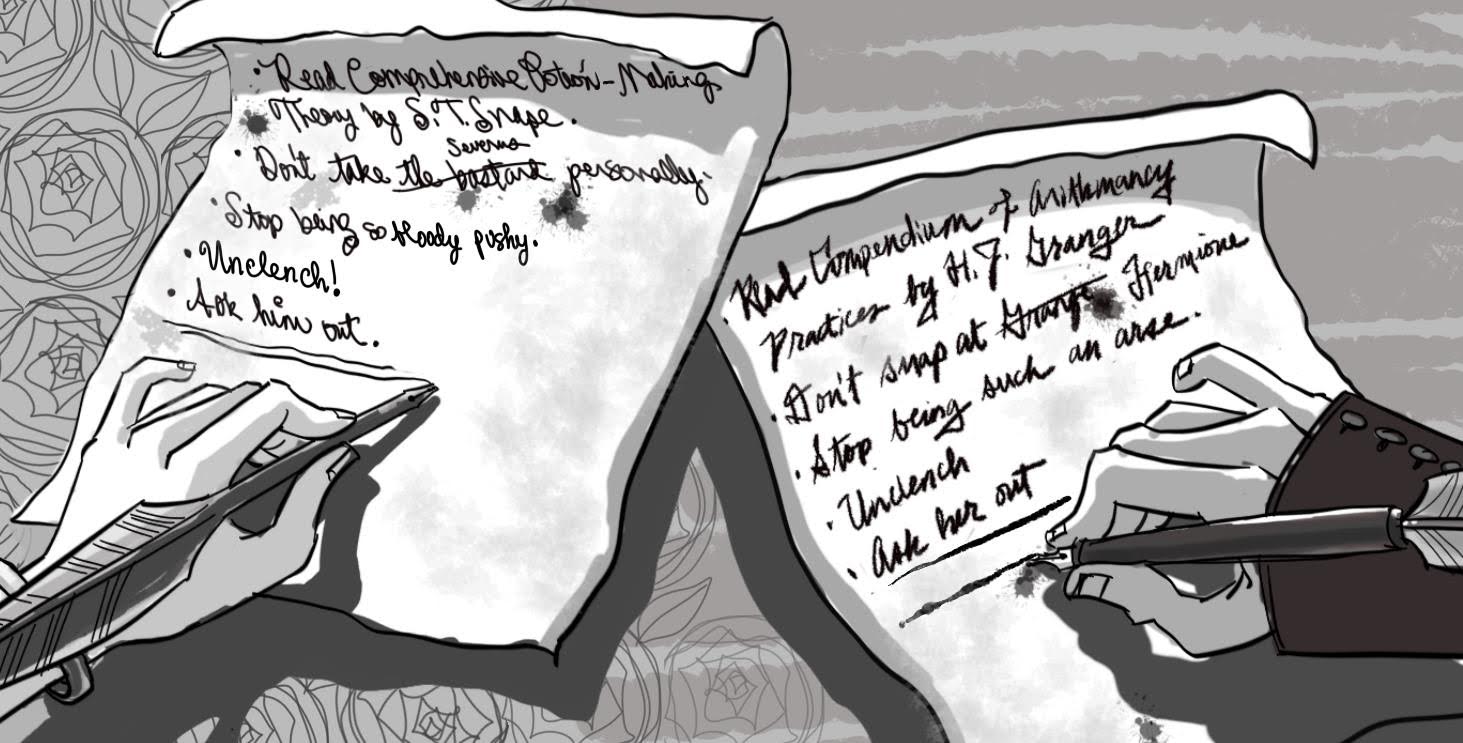 • Read Comprehensive Potion-Making
Theory by S.T. Snape.
Severus
• Don't take the bastard personally.
• Stop being so bloody pushy.
• Unclench!
• Ask him out.
• Read Compendium of Arithmancy
Practices by H.J. Granger
• Don't snap at Grange Hermione
• Stop being such an arse.
• Unclench
• Ask her out